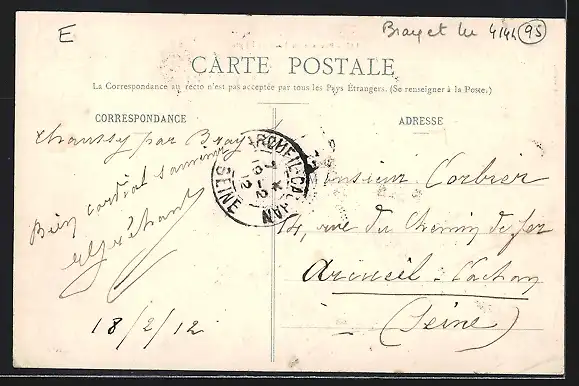 E
Bray et lu 4141 95
CARTE POSTALE
La Correspondance au recto n'est pas acceptée par tous les Pays Étrangers. (Se renseigner à la Poste.)
CORRESPONDANCE
ADRESSE
Chaussy par Bray
Bien cordial souvenir
18/2/12
ARCUEIL-CACHAN
SEINE
Monsieur Corbier
14, rue du Chemin de fer
Arcueil-Cachan
(Seine)